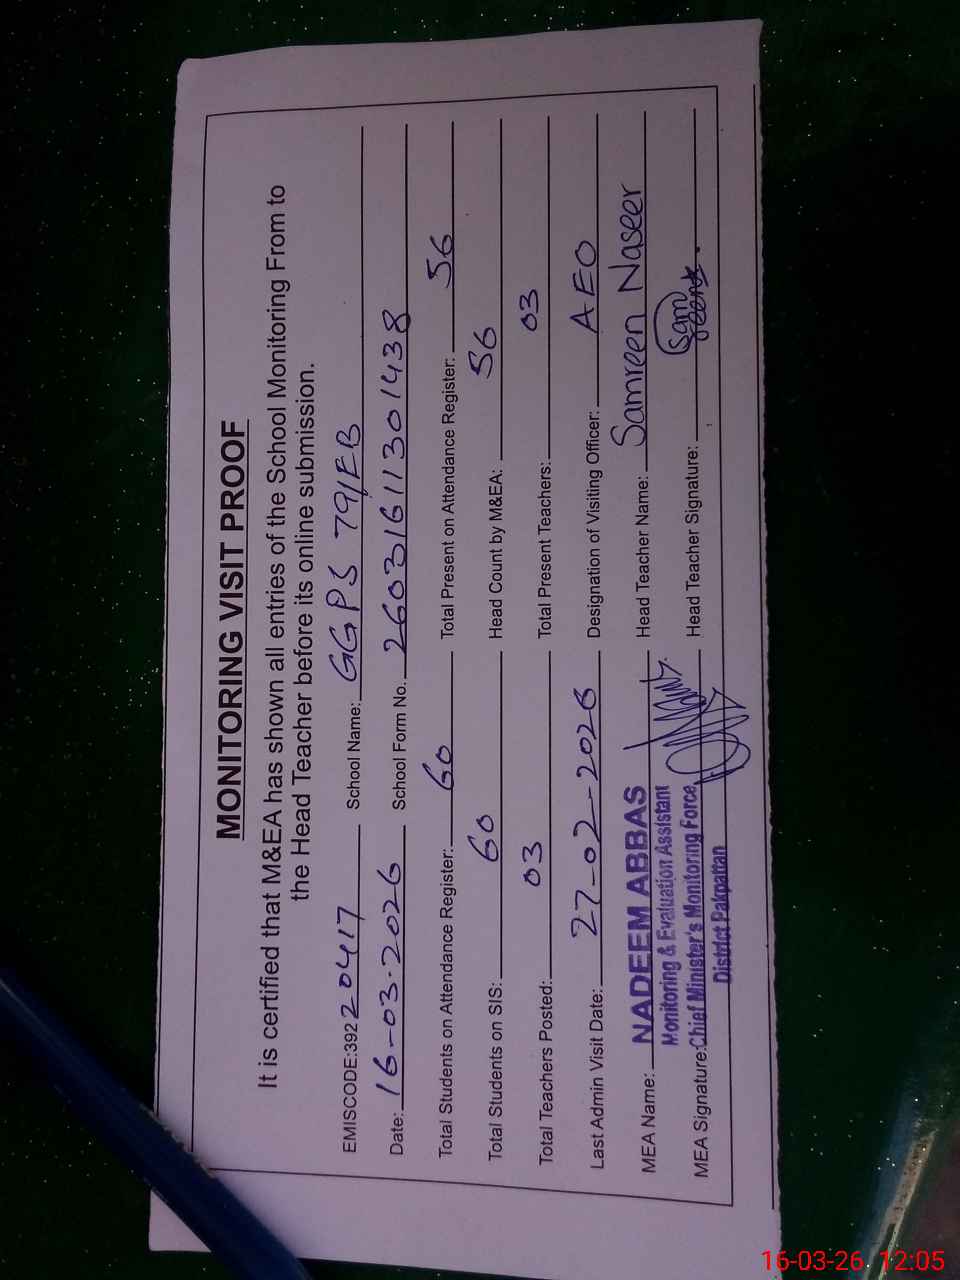 MONITORING VISIT PROOF
It is certified that M&EA has shown all entries of the School Monitoring From to
the Head Teacher before its online submission.
EMISCODE:392 20417 School Name: GGPS 79/EB
Date: 16-03-2026 School Form No. 26031611301438
Total Students on Attendance Register: 60 Total Present on Attendance Register: 56
Total Students on SIS: 60 Head Count by M&EA: 56
Total Teachers Posted: 03 Total Present Teachers: 03
Last Admin Visit Date: 27-02-2026 Designation of Visiting Officer: AEO
MEA Name: NADEEM ABBAS Head Teacher Name: Samreen Naseer
Monitoring & Evaluation Assistant
MEA Signature: Chief Minister's Monitoring Force Head Teacher Signature: Sam
District Pakpattan
16-03-26 12:05